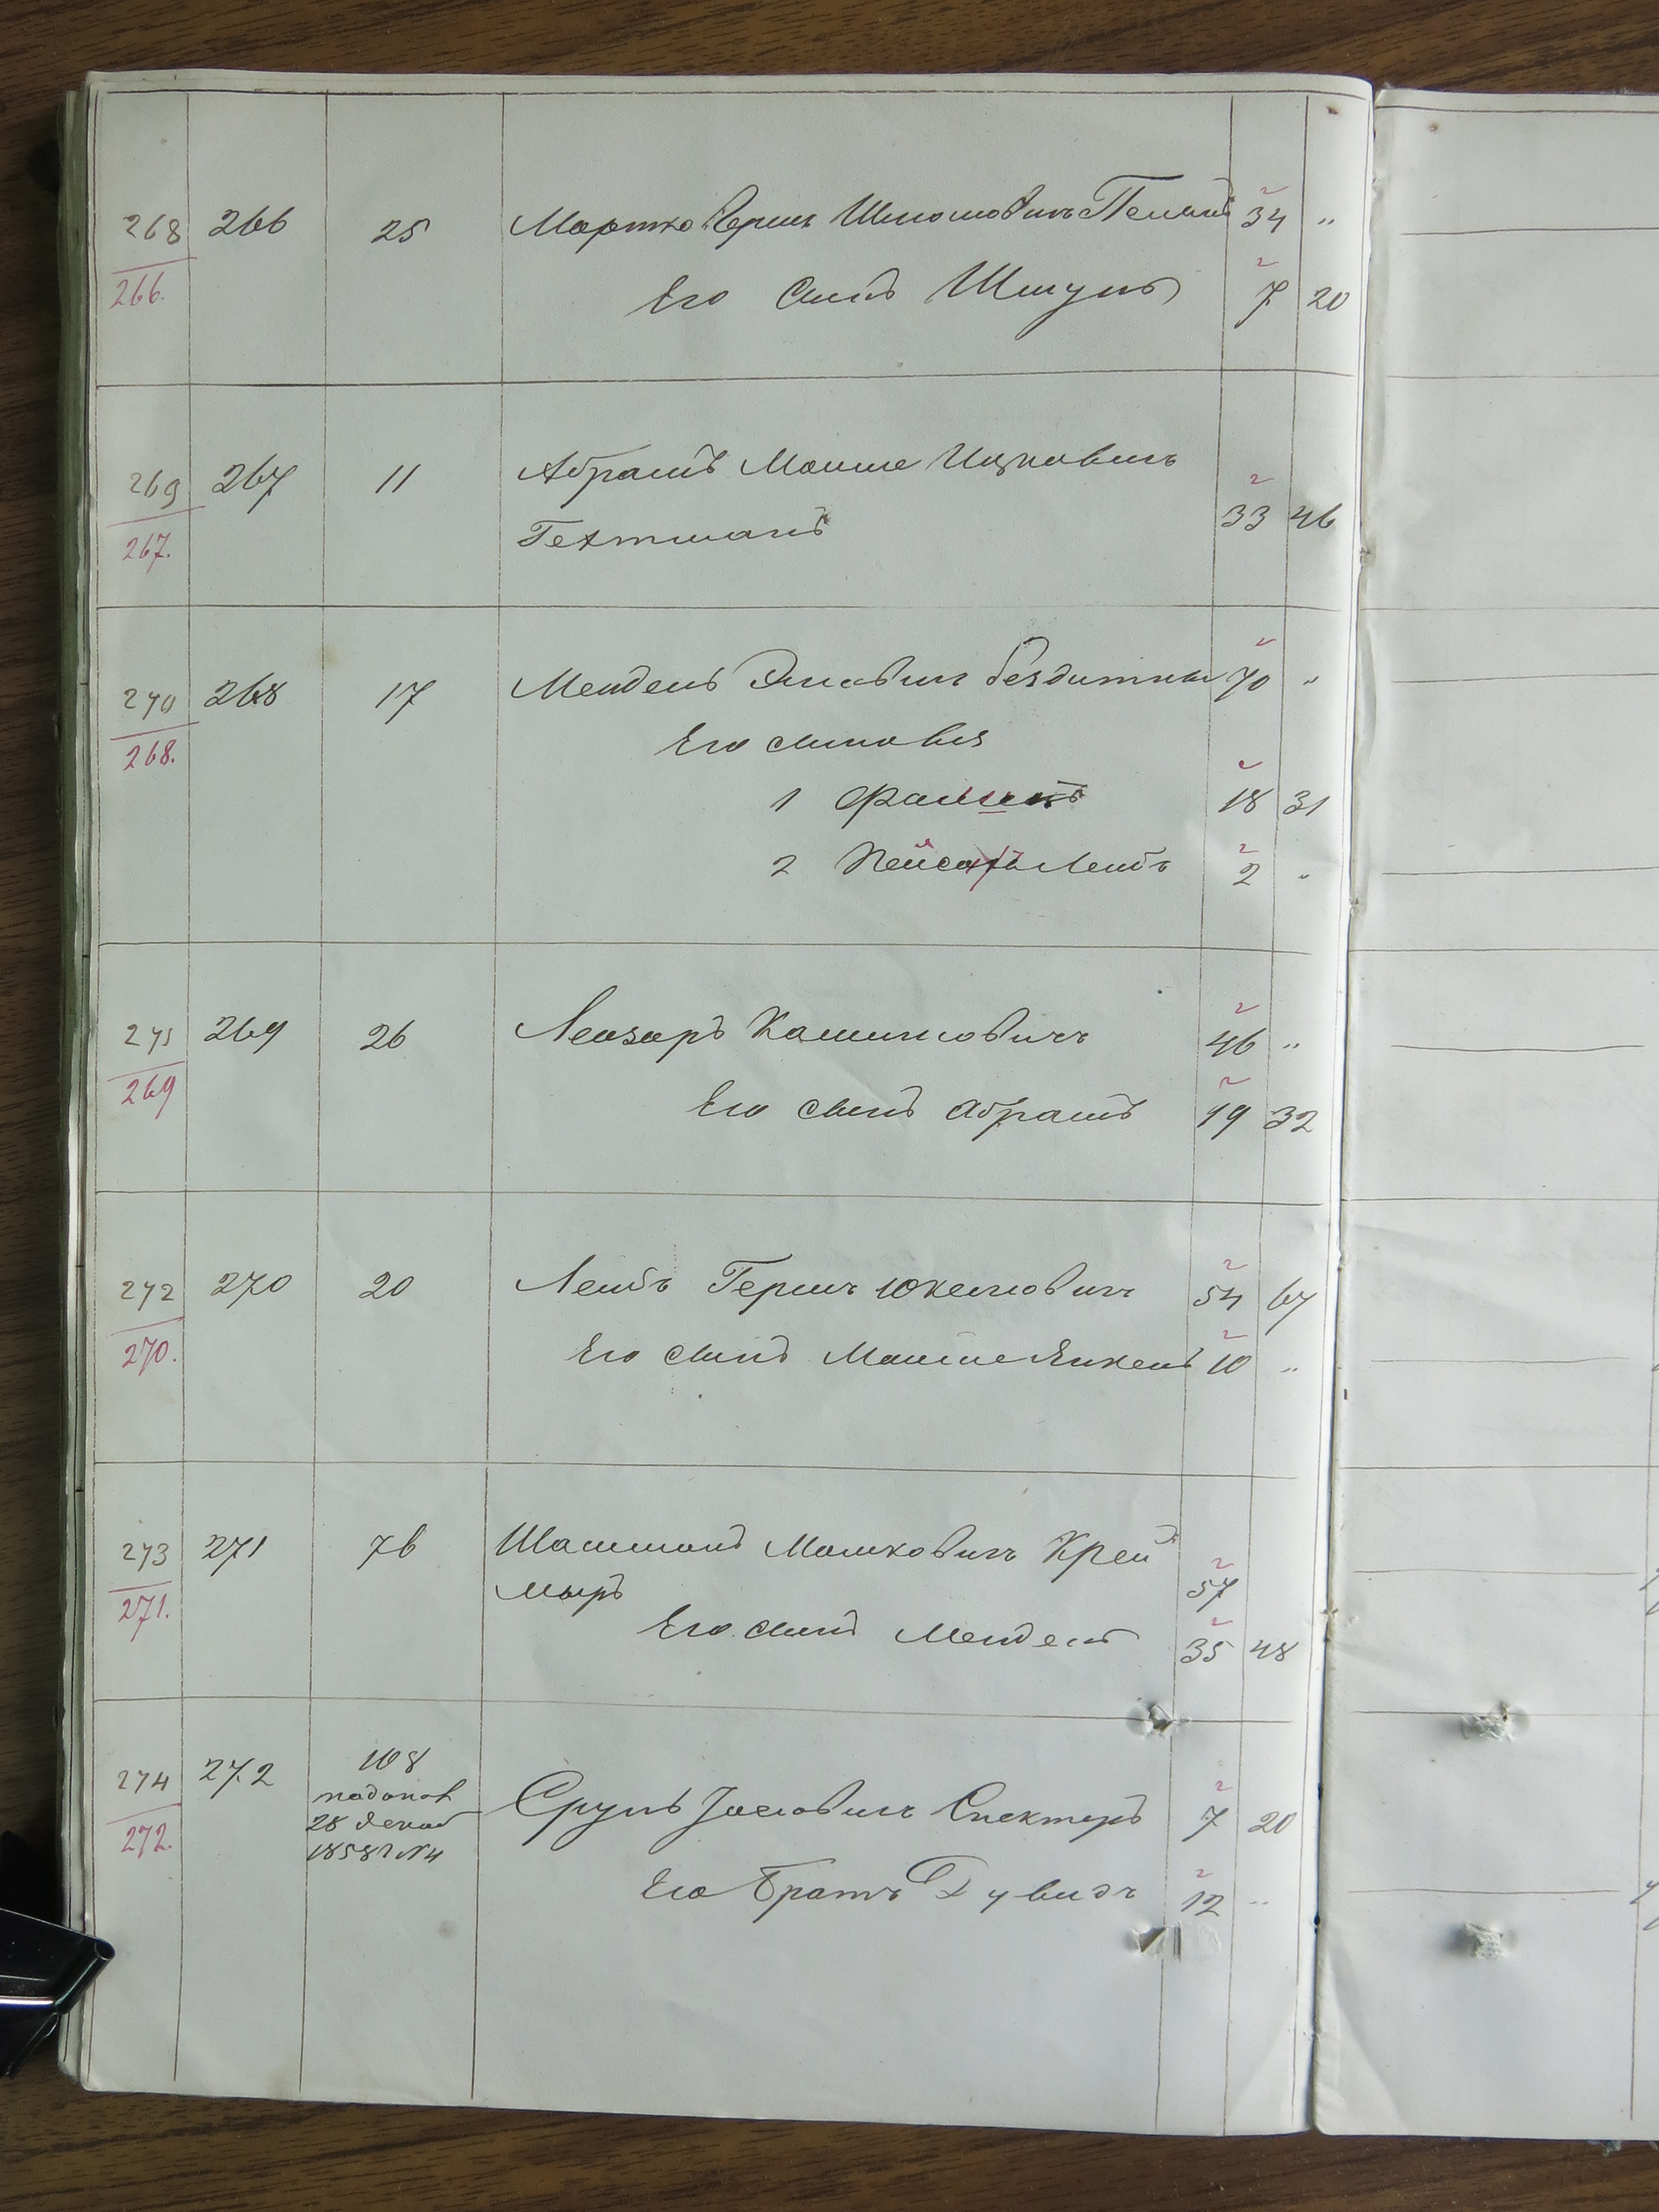 268 266 25 Мортко Герш Шлиомовичъ 34 „
266. Его Сынъ Шмуль 7 20
269 267 11 Абрамъ Мошке Ицковичъ
267. Гехтманъ 33 46
270 268 17 Мендель Эліовичъ Бездитны 70 „
268. Его сыновья
1 18 31
2 Пейсахъ Лейбъ 2 „
271 269 26 Леизоръ Кошиловичъ 46 „
269 Его сынъ Абрамъ 19 32
272 270 20 Лейбъ Гершъ Юкелиовичъ 54 67
270. Его сынъ Мошке Янкель 10 „
273 271 76 Шлиомонъ Мошковичъ Крей
271. мыръ 57
Его сынъ Мендель 35 48
274 272 108
по допол
28 декаб Срулъ Іосіовичъ Спекторъ 7 20
272. 1858 г N4
Его братъ Дувидъ 12 „